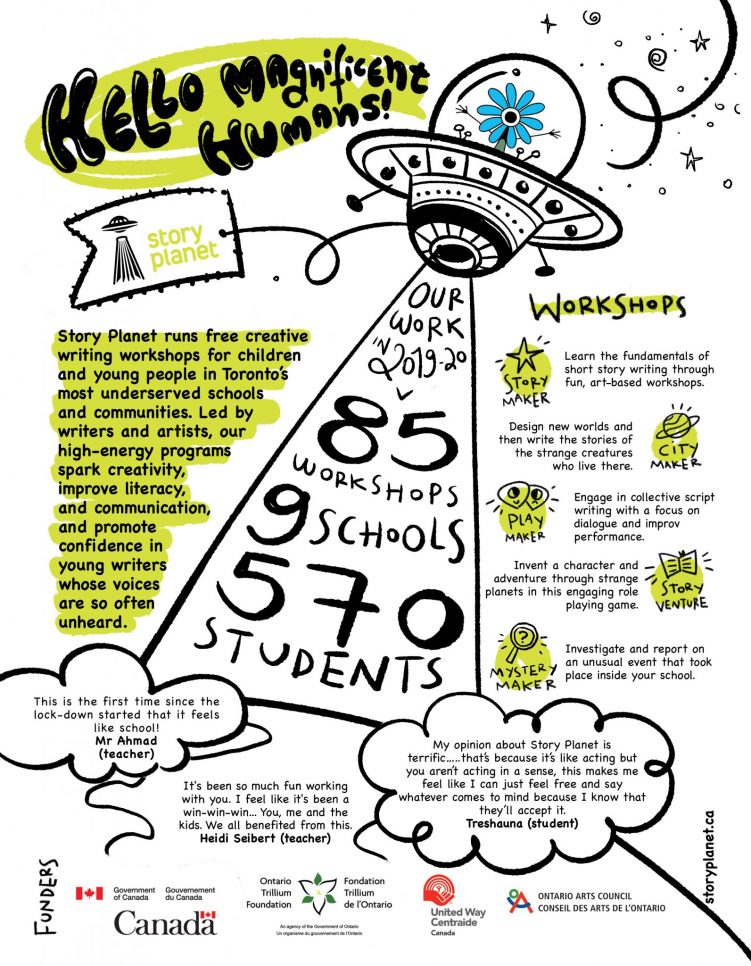 HELLO MAgnificent
HUMANS!
story
planet
Story Planet runs free creative
writing workshops for children
and young people in Toronto's
most underserved schools
and communities. Led by
writers and artists, our
high-energy programs
spark creativity,
improve literacy,
and communication,
and promote
confidence in
young writers
whose voices
are so often
unheard.
OUR
WORK
IN
2019-20
85
WORKSHOPS
9 SCHOOLS
570
STUDENTS
WORKSHOPS
STORY
MAKER
Learn the fundamentals of
short story writing through
fun, art-based workshops.
Design new worlds and
then write the stories of
the strange creatures
who live there.
CITY
MAKER
PLAY
MAKER
Engage in collective script
writing with a focus on
dialogue and improv
performance.
Invent a character and
adventure through strange
planets in this engaging role
playing game.
STORY
VENTURE
?
MYSTERY
MAKER
Investigate and report on
an unusual event that took
place inside your school.
This is the first time since the
lock-down started that it feels
like school!
Mr Ahmad
(teacher)
My opinion about Story Planet is
terrific.....that's because it's like acting but
you aren't acting in a sense, this makes me
feel like I can just feel free and say
whatever comes to mind because I know that
they'll accept it.
Treshauna (student)
It's been so much fun working
with you. I feel like it's been a
win-win-win... You, me and the
kids. We all benefited from this.
Heidi Seibert (teacher)
storyplanet.ca
FUNDERS
Government
of Canada
Gouvernement
du Canada
Canada
Ontario
Trillium
Foundation
Fondation
Trillium
de l'Ontario
An agency of the Government of Ontario
Un organisme du gouvernement de l'Ontario
United Way
Centraide
Canada
ONTARIO ARTS COUNCIL
CONSEIL DES ARTS DE L'ONTARIO